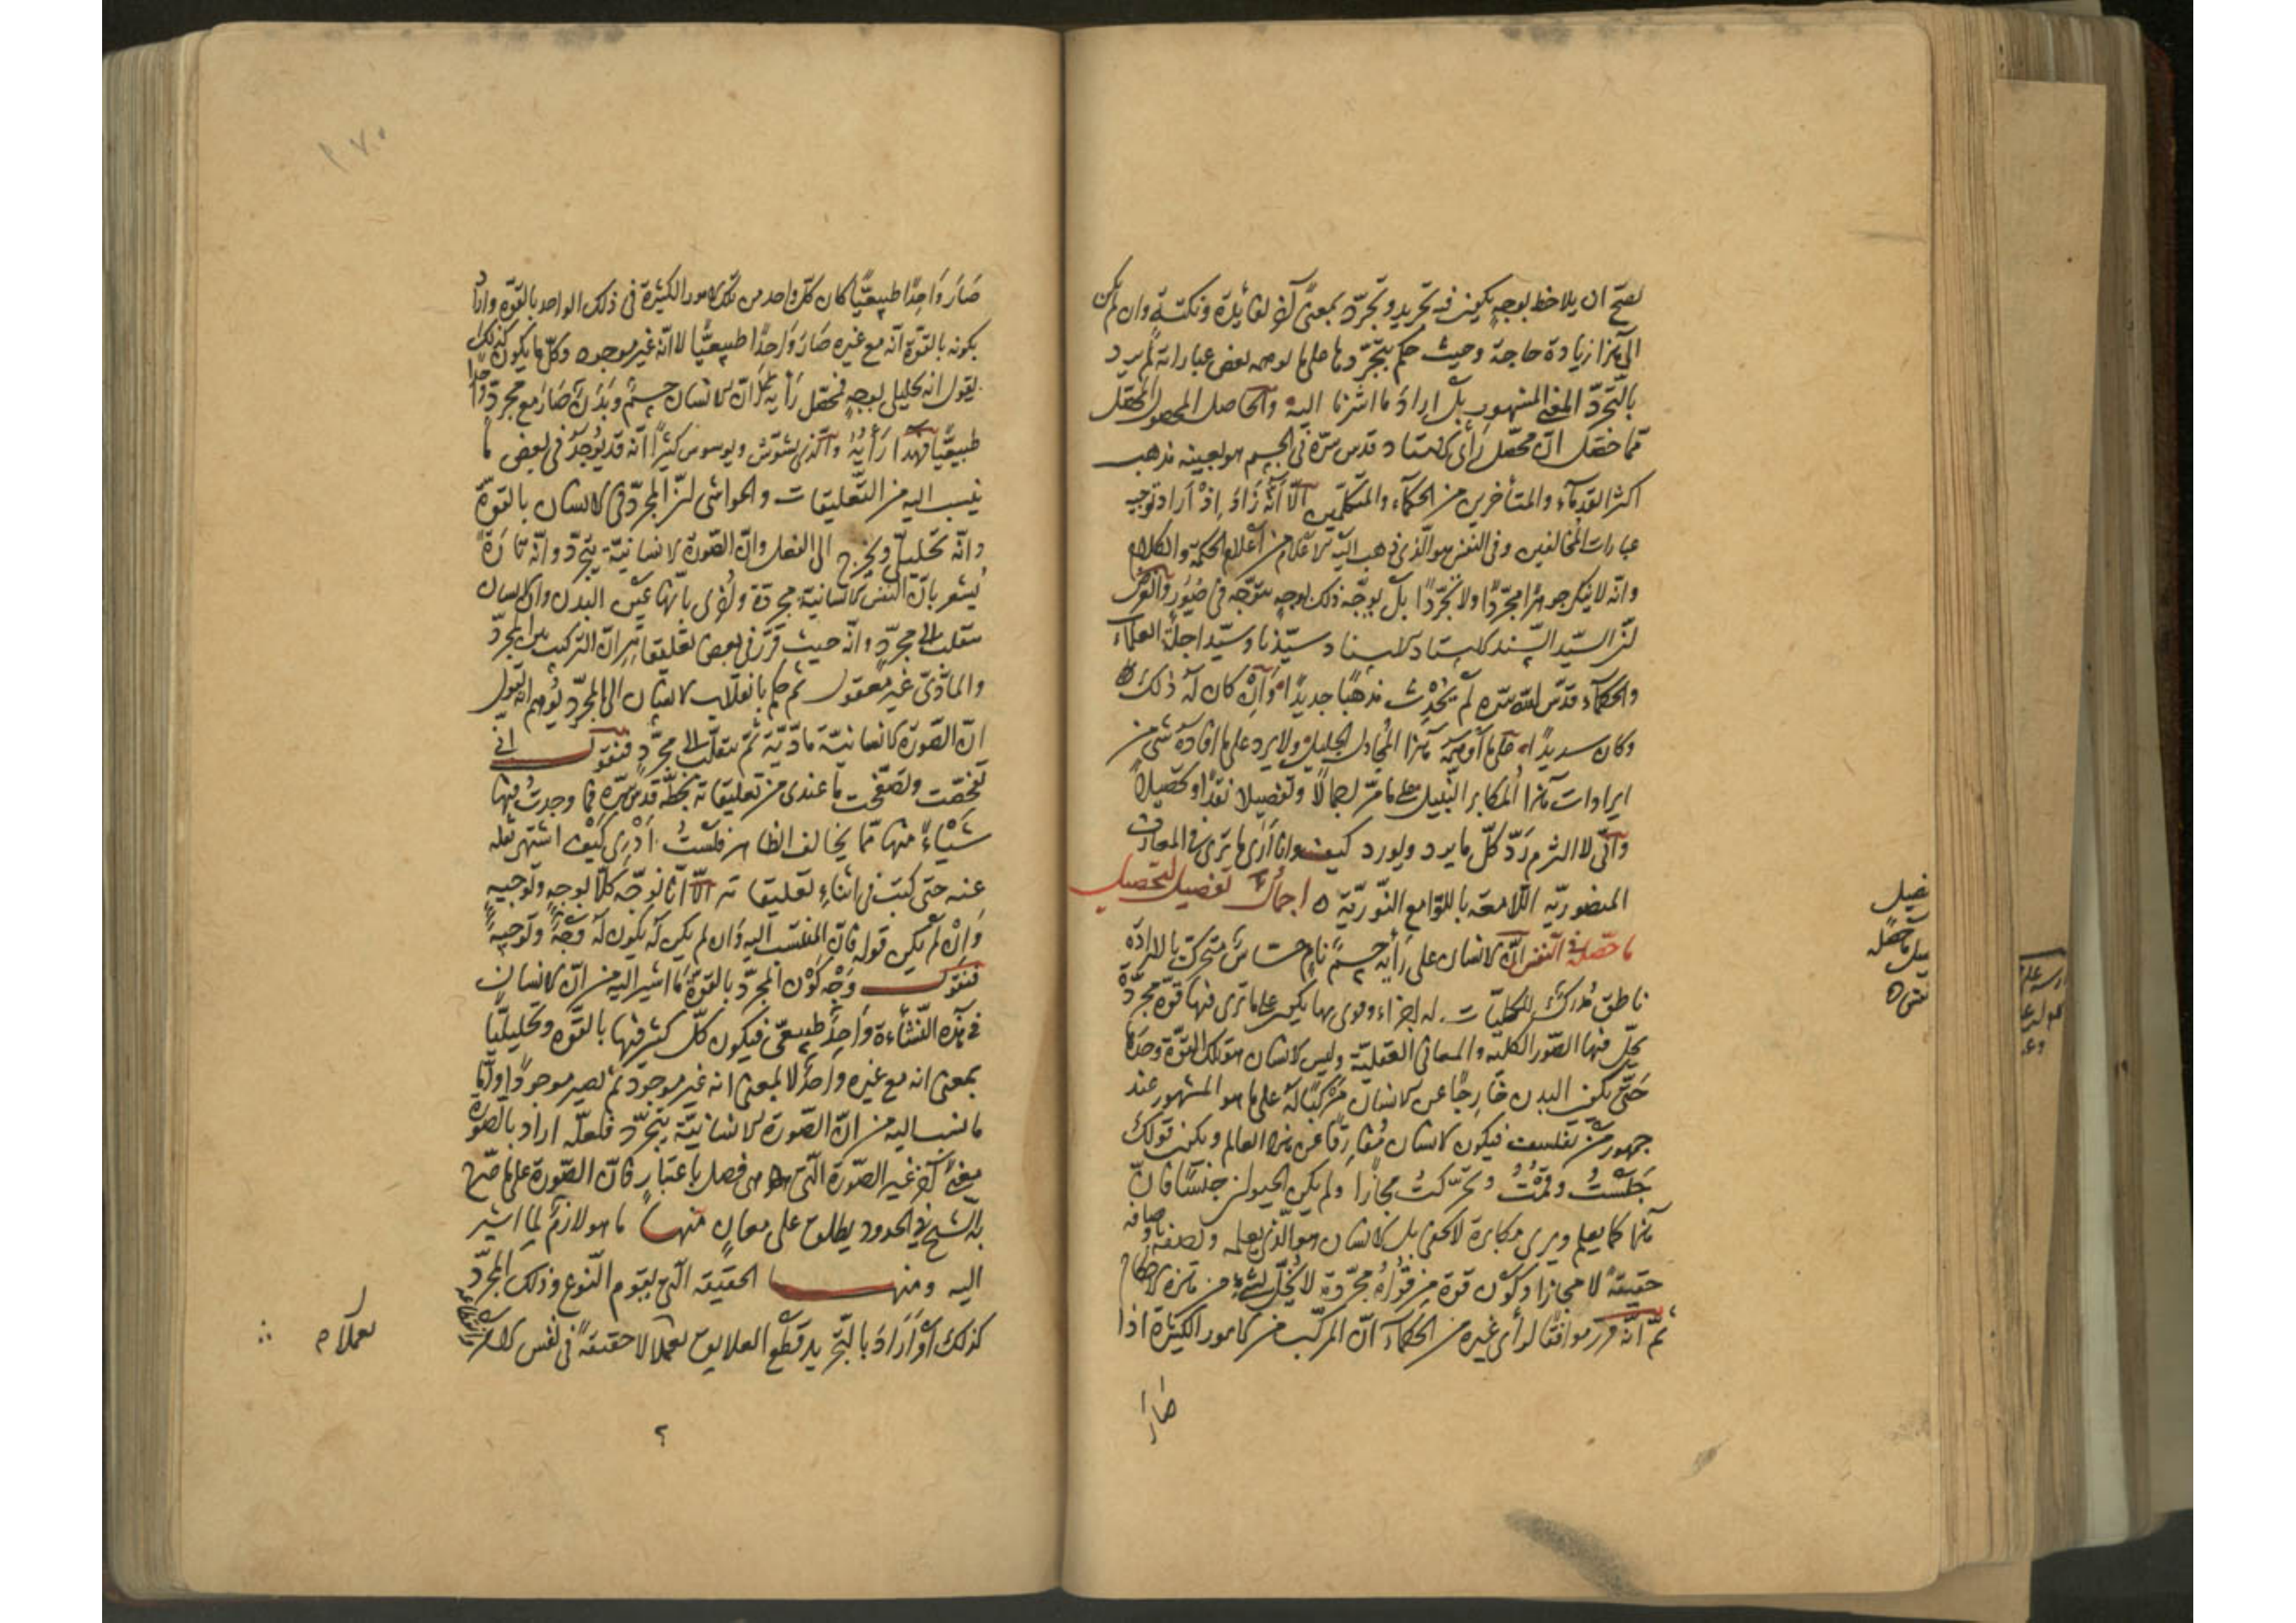 يصح ان يلاحظ بوجه يكون فيه تجريد وتجرّد بمعنى آخر لفائدة ونكتة وان لم يكن
الى هذا زيادة حاجة وحيث حكم بتجرّدها على ما يوهمه بعض عباراته لم يرد
بالتجرّد المعنى المشهور بل اراد ما اشرنا اليه والحاصل المحصول المحقق
ممّا حقق انّ محصّل رأى الاستاد قدس سرّه فى الجسم هو بعينه مذهب
اكثر القدماء والمتأخرين من الحكماء والمتكلمين الّا أنّه زاد اذ اراد توجيه
عبارات المخالفين وفى النفس هو الّذى ذهب اليه الاعلام من أعلام الحكمة والكلام
وانّه لا ينكر جوهرا مجرّدا ولا تجرّدا بل يوجّه ذلك بوجه يتوجّه فى صور والغرض
انّ السيّد السند الاستاد الاسناد سيّدنا وسيّد اجلّة العلماء
والحكماء قدّس الله سرّه لم يُحدث مذهبا جديدا وان كان له ذلك
وكان سديدا على ما أوهمه هذا المجادل الجليل ولا يرد على ما افاده شئ من
ايرادات هذا المكابر النبيل على ما مرّ اجمالا وتفصيلا نقدا وتحصيلا
وانّى لا التزم ردّ كلّ ما يرد ويورد كيف وانا أرى ما ترى فى المعارف
المنصوريّه اللّامعة باللوامع النّوريّة ه اجمال تفصيل لتحصيل
ما حصّله فى النفس انّ الانسان على رأيه جسم نام حساس متحرك بالاراده
ناطق مُدرك للكليّات له اجزاء وقوى بها يكون على ما ترى فيها قوّة مجرّدة
يحلّ فيها الصّور الكليّه والمعانى العقليّة وليس الانسان هو تلك القوّة وحدها
حتّى يكون البدن خارجا عن الانسان مركبا له على ما هو المشهور عند
جمهور من تفلسف فيكون الانسان مفارقا عن هذا العالم ويكون قولك
جلستُ وقمتُ وتحرّكتُ مجازا ولم يكن الحيوان جنسا فانّ
هذا كما يعلم ويرى مكابرة لا تخفى بل الانسان هو الّذى يعلمه وتصفه باوصافه
حقيقة لا مجازا وكون قوة من قواه مجرّدة لا يُخلّ بشئ من هذه الاحكام
ثمّ انّه قرّر موافقا لرأى غيره من الحكماء انّ المركّب من الامور الكثيرة اذا
صار
صار واحدا طبيعيّا كان كلّ واحد من تلك الامور الكثيرة فى ذلك الواحد بالقوّة واراد
بكونه بالقوّة انّه مع غيره صار واحدا طبيعيّا لا انّه غير موجود وكلّ ما يكون كذلك
يقول انه تحليلى بوجه فمحصّل رأيه انّ الانسان جسم وبدن صار مع مجرد واحدا
طبيعيّا فهذا رأيه والّذى يشوّش ويوسوس كثيرا انّه قد يوجد فى بعض ما
ينسب اليه من التّعليقات والحواشى انّ المجرّد فى الانسان بالقوّة
وانّه تحليلىّ ويخرج الى الفعل وانّ الصّورة الانسانيّة يتجرّد وانّه تارة
يُشعر بانّ النفس الانسانيّة مجرّدة واُخرى بانّها عين البدن وان الانسان
ينقلب الى مجرّد وانّه حيث قرّر فى بعض تعليقاته انّ التركيب من المجرّد
والمادّى غير معقول ثم حكم بانقلاب الانسان الى المجرّد يُوهم انه يقول
انّ الصّورة الانسانيّة مادّيّة ثمّ ينقلب الى مجرّد فنقول انى
تفحّصت وتصفّحت ما عندى من تعليقاته بخطّه قدّس سرّه فما وجدتُ فيها
شيئا منها ممّا يخالف الظاهر فلستُ ادرى كيف اشتهر نقله
عنه حتى كتب فى اثناء تعليقاته الّا انّا نوجّه كلّا بوجه وتوجيه
وان لم يكن قوله فانّ المنتسب اليه وان لم يكن له يكون له وجه وتوجيه
فنقول وجه كون المجرّد بالقوّة ما اشير اليه من انّ الانسان
فى هذه النّشأة واحد طبيعى فيكون كلّ كثير فيها بالقوّه وتحليليّا
بمعنى انه مع غيره واحد لا بمعنى انه غير موجود ثم يصير موجودا وامّا
ما نسب اليه من انّ الصّورة الانسانيّة يتجرّد فلعلّه اراد بالصّورة
معنى آخر غير الصّورة الّتى هى فصل باعتبار فانّ الصّورة على ما صرّح
به الشيخ فى الحدود يطلق على معان منها ما هو لازم لما اشير
اليه ومنها الحقيقه الّتى يقوم النّوع وذلك المجرّد
كذلك أو أراد بالتّجريد قطع العلايق تعقّلا لا حقيقة فى نفس الامر